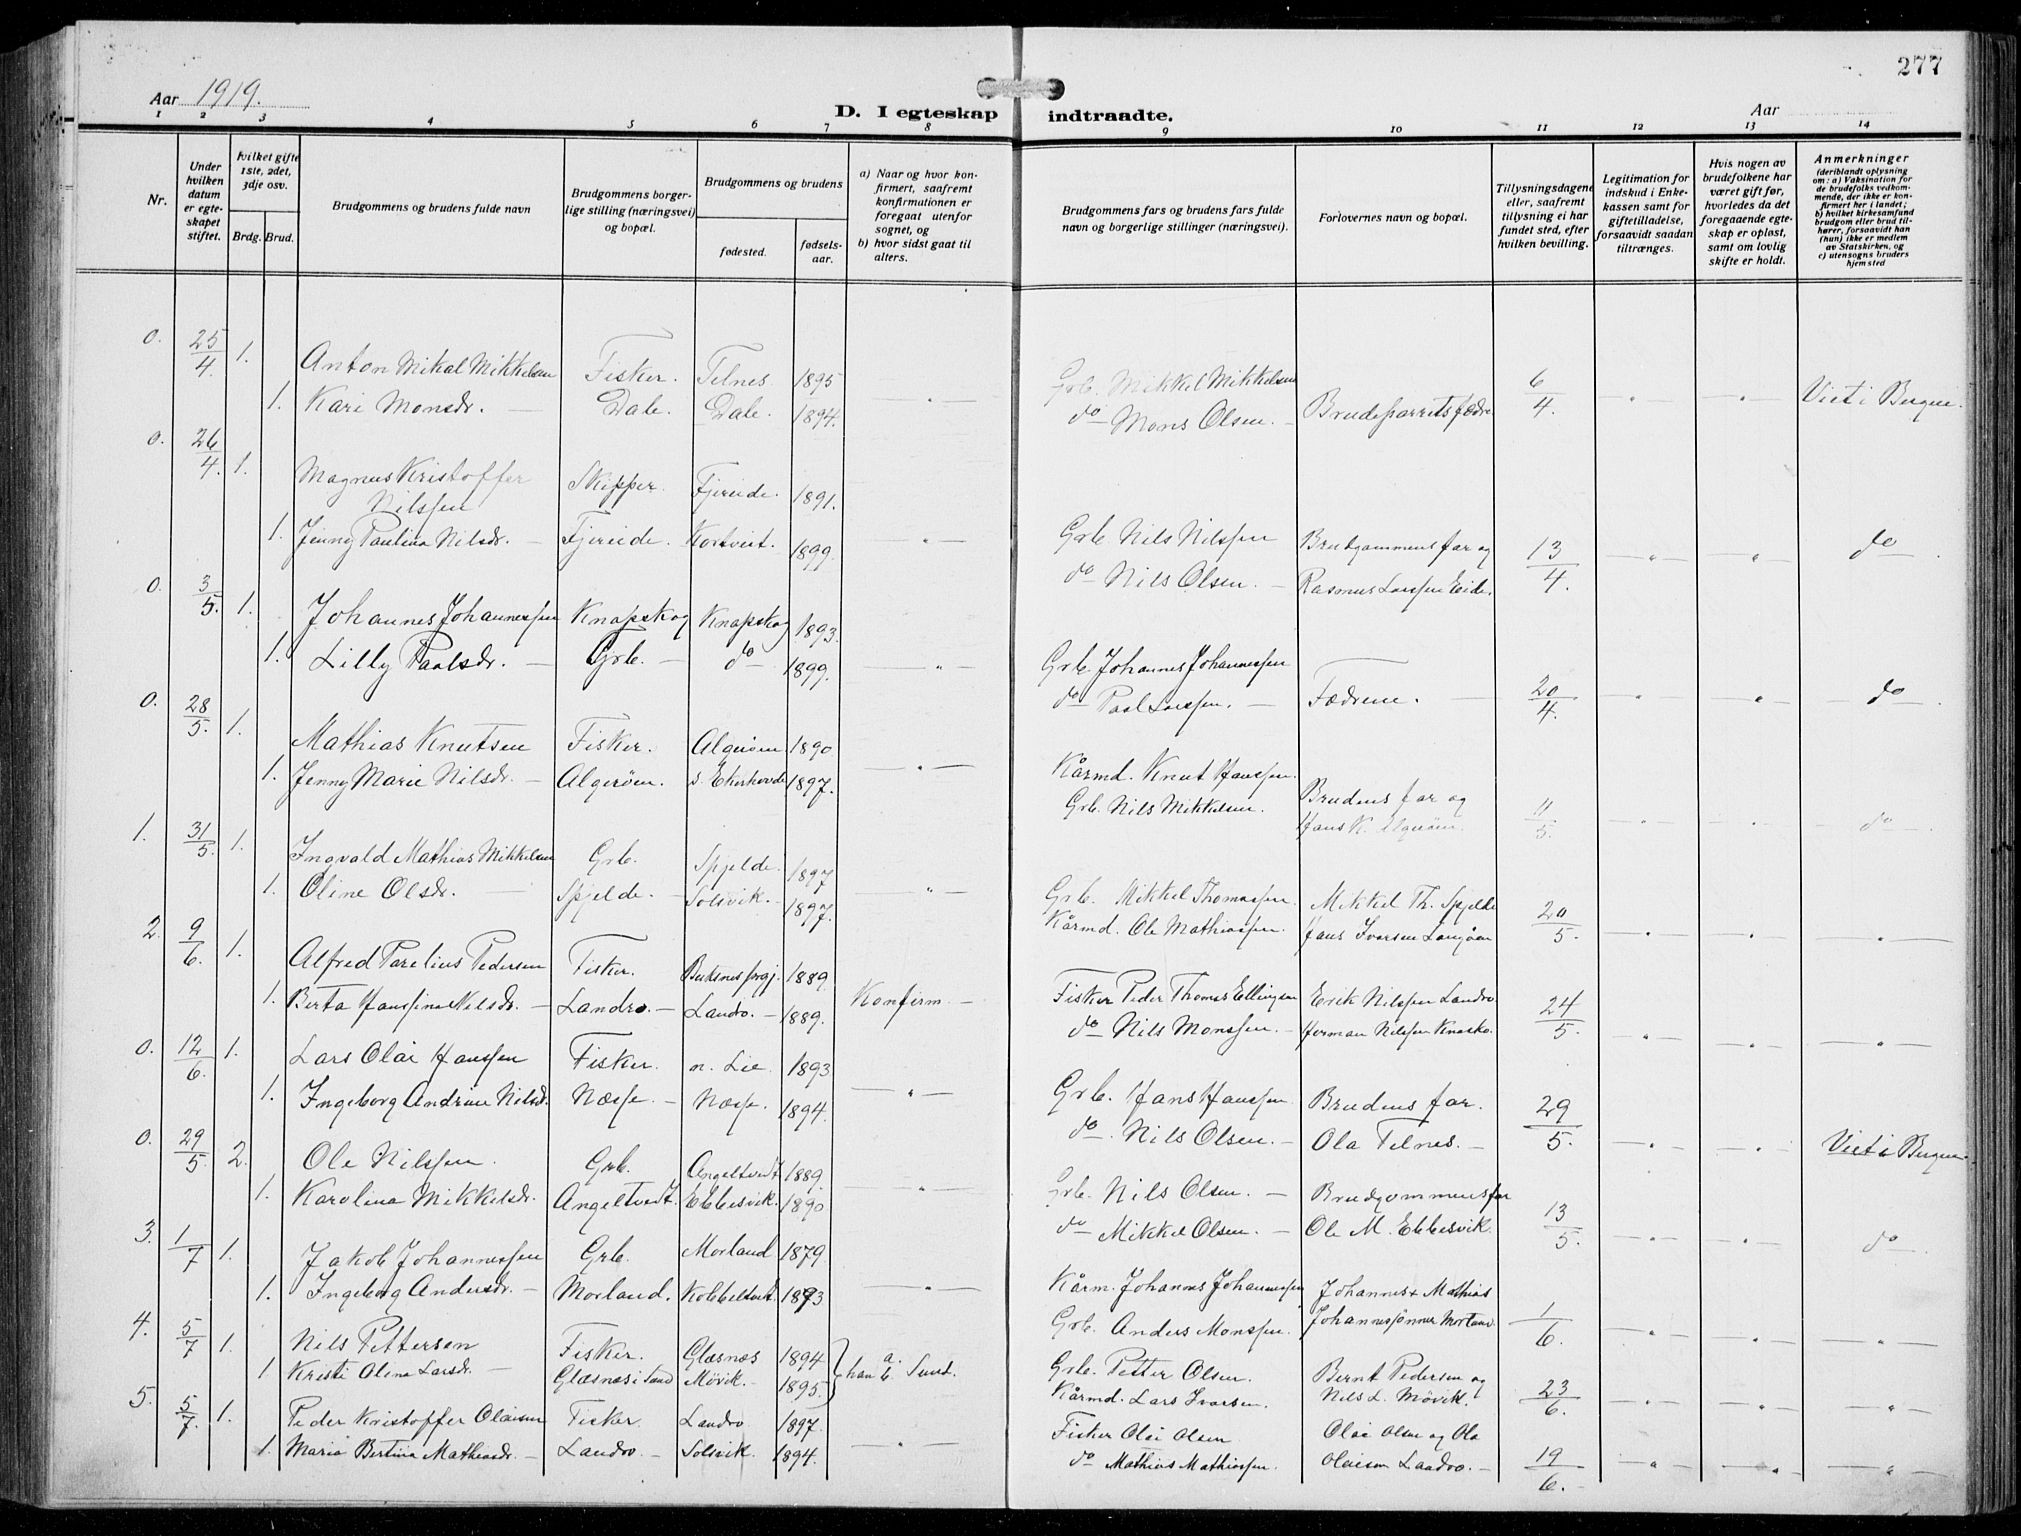 277
Aar 1919.
D. I egteskap indtraadte.
Aar
1 2 3 4 5 6 7 8 9 10 11 12 13 14
Nr.
Under hvilken datum er egteskapet stiftet.
hvilket gifte 1ste, 2det, 3dje osv.
Brdg. Brud.
Brudgommens og brudens fulde navn
Brudgommens borgerlige stilling (næringsvei) og bopæl.
Brudgommens og brudens
fødested.
fødselsaar.
a) Naar og hvor konfirmert, saafremt konfirmationen er foregaat utenfor sognet, og
b) hvor sidst gaat til alters.
Brudgommens fars og brudens fars fulde navn og borgerlige stillinger (næringsvei).
Forlovernes navn og bopæl.
Tillysningsdagene eller, saafremt tillysning ei har fundet sted, efter hvilken bevilling.
Legitimation for indskud i Enkekassen samt for giftetilladelse, forsaavidt saadan tiltrænges.
Hvis nogen av brudefolkene har været gift før, hvorledes da det foregaaende egteskap er opløst, samt om lovlig skifte er holdt.
Anmerkninger (deriblandt oplysning om: a) Vaksination for de brudefolks vedkommende, der ikke er konfirmert her i landet; b) hvilket kirkesamfund brudgom eller brud tilhører, forsaavidt han (hun) ikke er medlem av Statskirken, og c) utensogns bruders hjemsted
0. 25/4 1. Anton Mikal Mikkelsen Fisker. Telnes. 1895 Grb. Mikkel Mikkelsen 6/4
1. Kari Monsdr. — Dale. Dale. 1894. — " — do Mons Olsen. — Brudeparrets fædre " " Viet i Bergen.
0. 26/4. 1. Magnus Kristoffer Nilssen Skipper. Fjereide. 1891. Grb. Nils Nilssen Brudgommens far og 13/4.
1. Jenny Paulina Nilsdr. — Fjereide. Kortveit. 1899. — " — do Nils Olsen. — Rasmus Larssen Eide. — " — " do
0. 3/5. 1. Johannes Johannessen Knapskog Knapskog 1893. Grb. Johannes Johannessen Fædrene. 20/4.
1. Lilly Paalsdr. — Grb. — do 1899. " — do Paal Larssen. — " " do
0. 28/5. 1. Mathias Knutsen Fisker. Algerøen. 1890 Kårmd. Knut Hanssen. Brudens far og 11/5.
1. Jenny Marie Nilsdr. — Algerøen. s. Ekerhovde 1897. — " — Grb. Nils Mikkelsen. Hans K. Algerøen. " " do
1. 31/5. 1. Ingvald Mathias Mikkelsen Grb. Spjelde. 1897 Grb. Mikkel Thomassen. Mikkel Th. Spjelde 20/5.
1. Oline Olsdr. — Spjelde. — Solsvik. — 1897. " — Kårmd. Ole Mathiassen. Hans Ivarsen Langøen " " "
2. 9/6. 1. Alfred Parelius Pedersen Fisker. Buksnes prgj. 1889. Fisker Peder Thomas Ellingsen Erik Nilssen Landro 24/5.
1. Berta Hanssina Nilsdr. — Landro. — Landro. — 1889. Konfirm. — do Nils Monssen. — Herman Nilssen Knasko. " " "
0. 12/6. 1. Lars Olai Hanssen Fisker. n. Lie. 1893 Grb. Hans Hanssen Brudens far. 29/5.
1. Ingeborg Andrine Nilsdr. Næsse. — Næsse. 1894. — " — do. Nils Olsen. — Ola Telnes. — " " Viet i Bergen.
0. 29/5. 2. Ole Nilssen. Grb. Angeltvedt. 1889. Grb. Nils Olsen. — Brudgommens far 13/5.
1. Karolina Mikkelsdr. Angeltvedt. Ebbesvik. 1890 " do Mikkel Olsen. — Ole M. Ebbesvik. " " do
3. 1/7 1. Jakob Johannessen Grb. Morland 1879 Kårm. Johannes Johannessen Johannes & Mathias 1/6.
1. Ingeborg Andersdr. — Morland. Kobbeltveit. 1893 " — Grb. Anders Monssen. Johannessønner Morland. " " "
4. 5/7 1. Nils Pettersen Fisker. Glæsnæs 1894 Grb. Petter Olsen. Bernt Pedersen og 23/6.
1 Kristi Olina Larsdr. — Glæsnæs i Sund Møvik. — 1895. han a. b. Sund. Kårmd. Lars Ivarsen. Nils L. Møvik. " " "
5. 5/7. 1. Peder Kristoffer Olaisen Fisker. Landro 1897. Fisker Olai Olsen Olai Olsen og Ola 19/6.
1. Maria Bertina Mathiasdr. — Landro — Solsvik. 1894. " — do Mathias Mathiassen. Olaisen Landro. — " " "